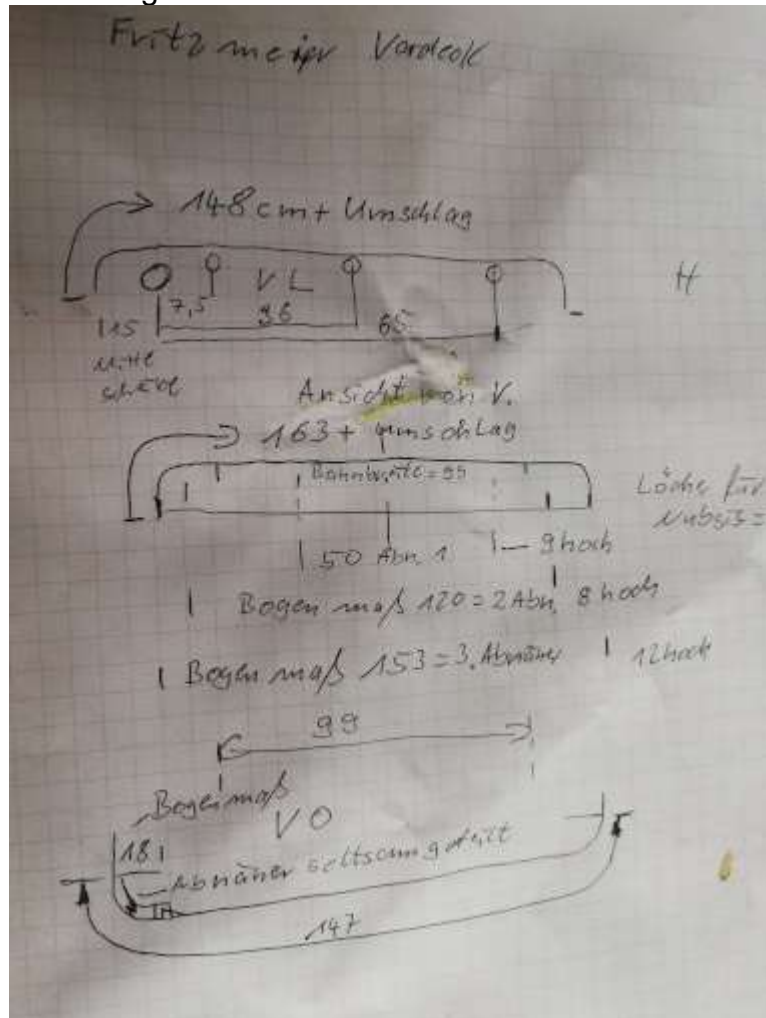 Fritzmeier Vordeck
148 cm + Umschlag
H
VL
7,5
36
65
115
Mitte
Ansicht von V.
163 + Umschlag
Bahnbreite = 99
Löcher für
50 Abn. 1
9 hoch
Bogenmaß 120 = 2 Abn. 8 hoch
Bogenmaß 153 = 3. Abnäher
12 hoch
99
Bogenmaß
VO
18
Abnäher seltsam geteilt
147